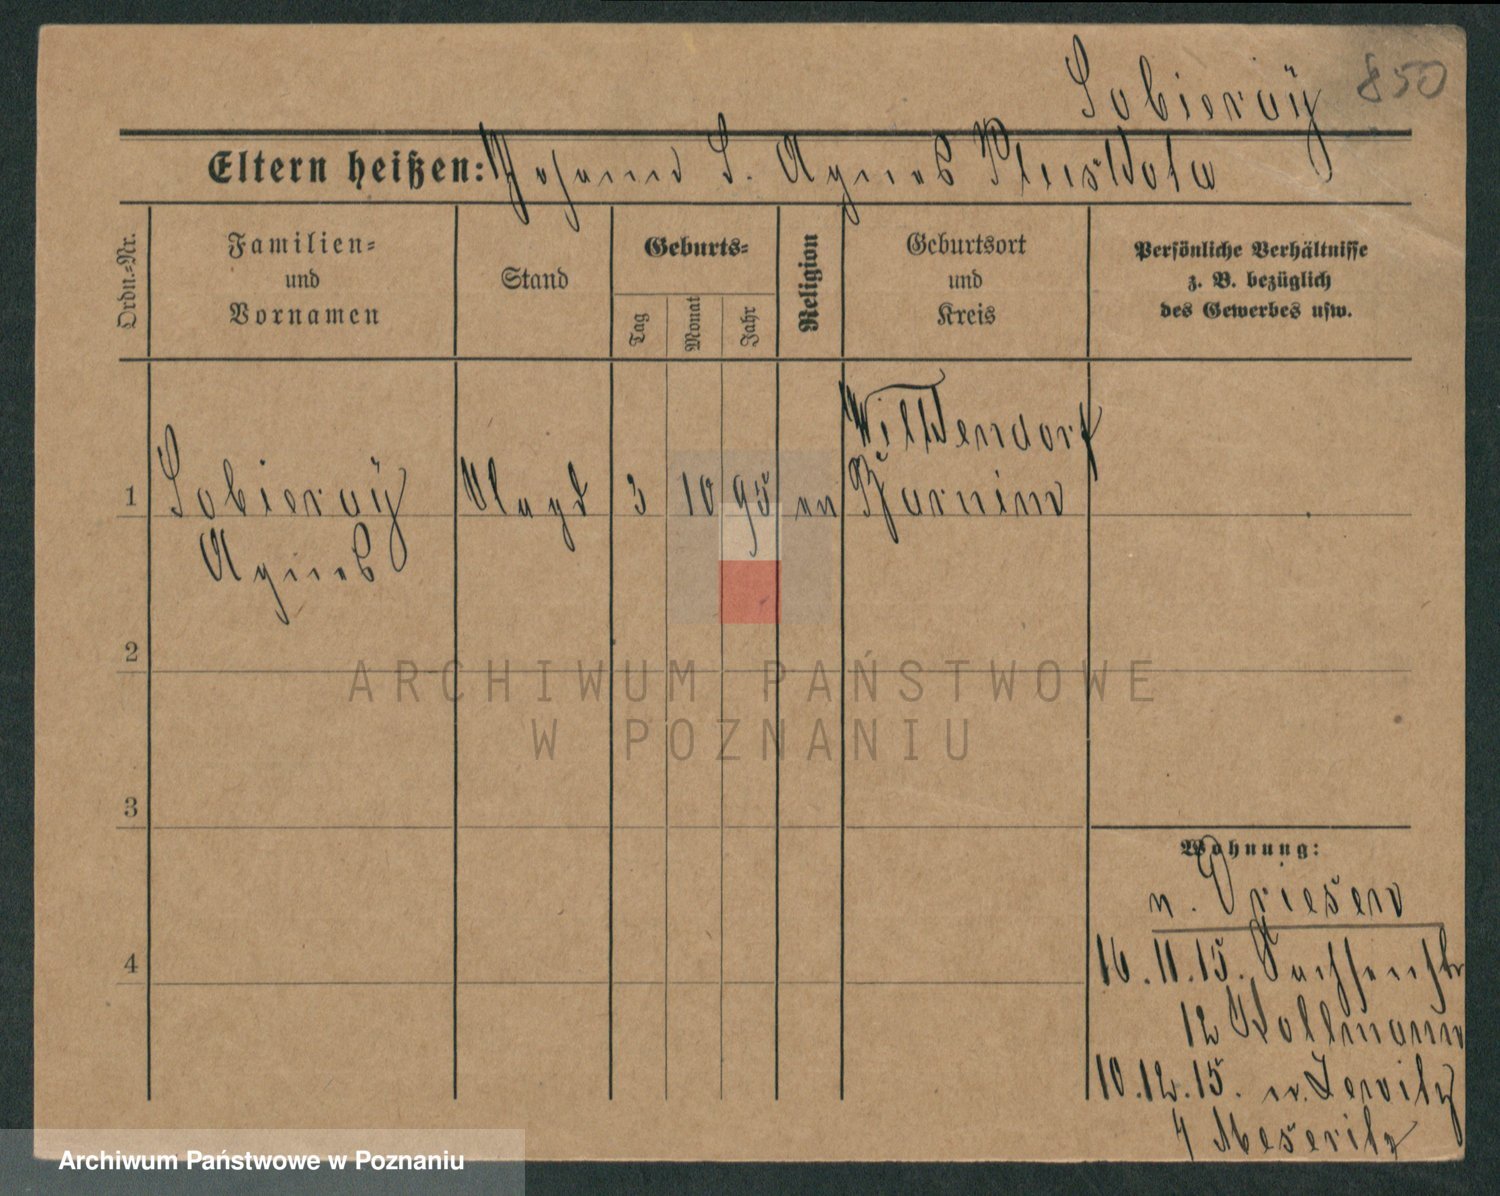 Sobieraÿ 850
Eltern heißen: Johann S. Agnes
Ordn.-Nr.
Familien-
und
Vornamen
Stand
Geburts-
Tag
Monat
Jahr
Religion
Geburtsort
und
Kreis
Persönliche Verhältnisse
z. B. bezüglich
des Gewerbes usw.
1
Sobieraÿ
Agnes
Magd
3
10
95
Barnim
2
ARCHIWUM PAŃSTWOWE
W POZNANIU
3
4
Wohnung:
n. Driesen
16.11.15. Sachsenstr
12 Kollmann
10.12.15. n.
Meseritz
Archiwum Państwowe w Poznaniu